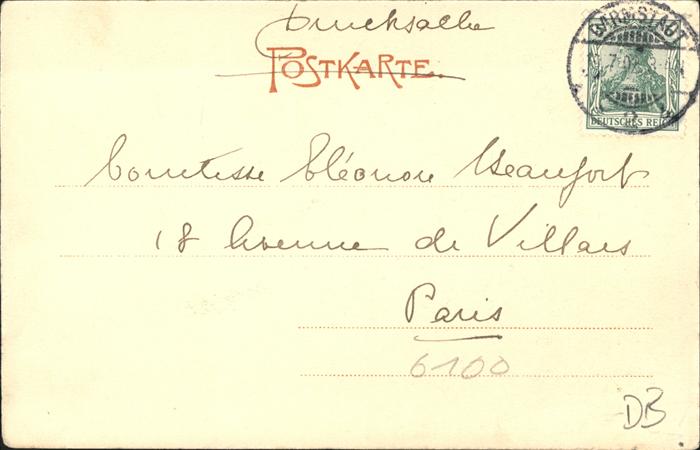 Drucksache
POSTKARTE
DARMSTADT
DEUTSCHES REICH
Comtesse Eléonore Beaufort
18 Avenue de Villars
Paris
6100
DB